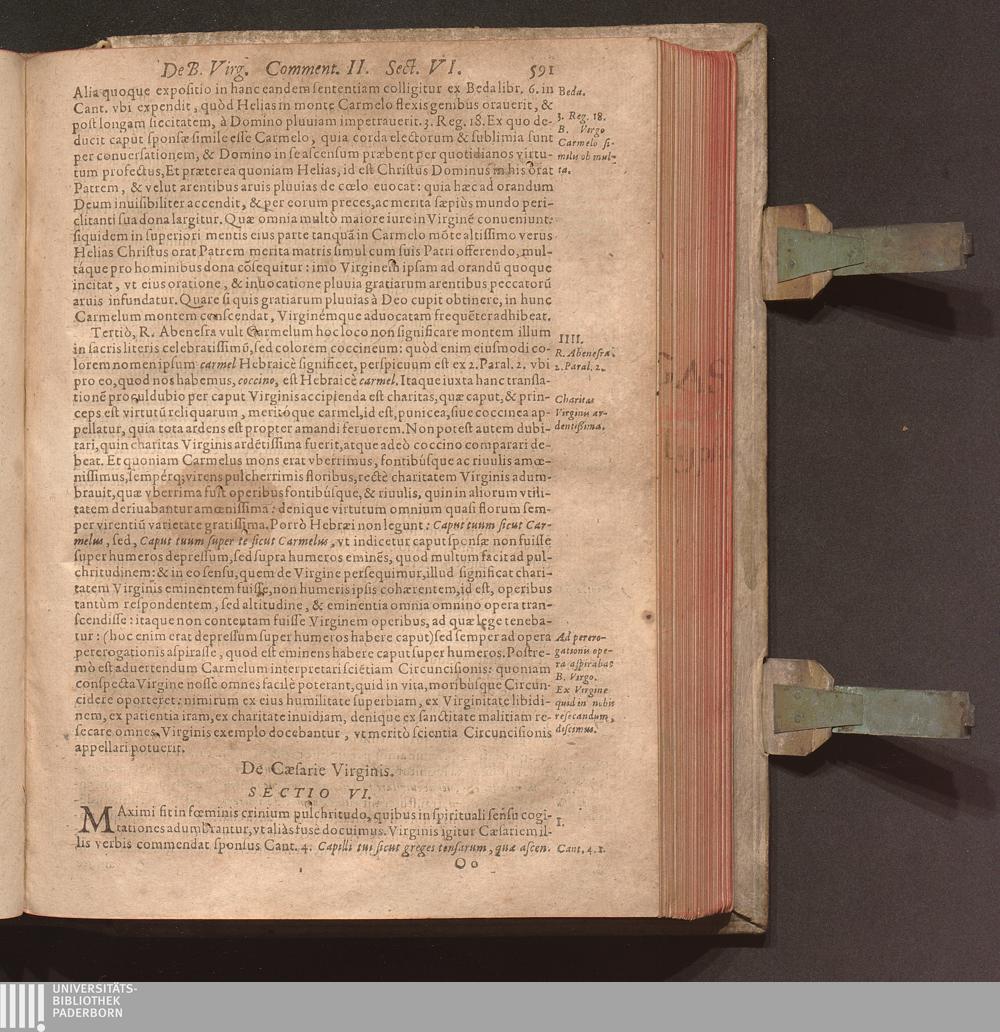 De B. Virg. Comment. II. Sect. VI. 591
Alia quoque expositio in hanc eandem sententiam colligitur ex Beda libr. 6. in
Cant. vbi expendit, quòd Helias in monte Carmelo flexis genibus orauerit, &
post longam siccitatem, à Domino pluuiam impetrauerit. 3. Reg. 18. Ex quo de-
ducit caput sponsæ simile esse Carmelo, quia corda electorum & sublimia sunt
per conuersationem, & Domino in se ascensum præbent per quotidianos virtu-
tum profectus, Et præterea quoniam Helias, id est Christus Dominus in his orat
Patrem, & velut arentibus aruis pluuias de cœlo euocat: quia hæc ad orandum
Deum inuisibiliter accendit, & per eorum preces, ac merita sæpiùs mundo peri-
clitanti sua dona largitur. Quæ omnia multò maiore iure in Virginē conueniunt:
siquidem in superiori mentis eius parte tanquā in Carmelo mōte altissimo verus
Helias Christus orat Patrem merita matris simul cum suis Patri offerendo, mul-
táque pro hominibus dona cōsequitur: imo Virginem ipsam ad orandū quoque
incitat, vt eius oratione, & inuocatione pluuia gratiarum arentibus peccatorū
aruis infundatur. Quare si quis gratiarum pluuias à Deo cupit obtinere, in hunc
Carmelum montem conscendat, Virginémque aduocatam frequēter adhibeat.
Tertiò, R. Abenesra vult Carmelum hoc loco non significare montem illum
in sacris literis celebratissimū, sed colorem coccineum: quòd enim eiusmodi co-
lorem nomen ipsum carmel Hebraicè significet, perspicuum est ex 2. Paral. 2. vbi
pro eo, quod nos habemus, coccino, est Hebraicè carmel. Itaque iuxta hanc transla-
tionē proculdubio per caput Virginis accipienda est charitas, quæ caput, & prin-
ceps est virtutū reliquarum, meritóque carmel, id est, punicea, siue coccinea ap-
pellatur, quia tota ardens est propter amandi feruorem. Non potest autem dubi-
tari, quin charitas Virginis ardētissima fuerit, atque adeò coccino comparari de-
beat. Et quoniam Carmelus mons erat vberrimus, fontibúsque ac riuulis amœ-
nissimus, semperq; virens pulcherrimis floribus, rectè charitatem Virginis adum-
brauit, quæ vberrima fuit operibus fontibúsque, & riuulis, quin in aliorum vtili-
tatem deriuabantur amœnissima: denique virtutum omnium quasi florum sem-
per virentiū varietate gratissima. Porrò Hebræi non legunt: Caput tuum sicut Car-
melus, sed, Caput tuum super te sicut Carmelus, vt indicetur caput sponsæ non fuisse
super humeros depressum, sed supra humeros eminēs, quod multum facit ad pul-
chritudinem: & in eo sensu, quem de Virgine persequimur, illud significat chari-
tatem Virginis eminentem fuisse, non humeris ipsis cohærentem, id est, operibus
tantùm respondentem, sed altitudine, & eminentia omnia omnino opera tran-
scendisse: itaque non contentam fuisse Virginem operibus, ad quæ lege teneba-
tur: (hoc enim erat depressum super humeros habere caput) sed semper ad opera
pererogationis aspirasse, quod est eminens habere caput super humeros. Postre-
mò est aduertendum Carmelum interpretari sciētiam Circuncisionis: quoniam
conspecta Virgine nosse omnes facilè poterant, quid in vita, moribúsque Circun-
cidere oporteret: nimirum ex eius humilitate superbiam, ex Virginitate libidi-
nem, ex patientia iram, ex charitate inuidiam, denique ex sanctitate malitiam re-
secare omnes, Virginis exemplo docebantur, vt meritò scientia Circuncisionis
appellari potuerit.
Beda.
3. Reg. 18.
B. Virgo
Carmelo si-
milis ob mul-
ta.
IIII.
R. Abenesra.
2. Paral. 2.
Charitas
Virginis ar-
dentissima.
Ad perero-
gationis ope-
ra aspirabat
B. Virgo.
Ex Virgine
quid in nobis
resecandum,
discimus.
De Cæsarie Virginis.
SECTIO VI.
MAximi fit in fœminis crinium pulchritudo, quibus in spirituali sensu cogi-
tationes adumbrantur, vt aliàs fusè docuimus. Virginis igitur Cæsariem il-
lis verbis commendat sponsus Cant. 4. Capilli tui sicut greges tonsarum, quæ ascen-
I.
Cant. 4. 1.
Oo
UNIVERSITÄTS-
BIBLIOTHEK
PADERBORN